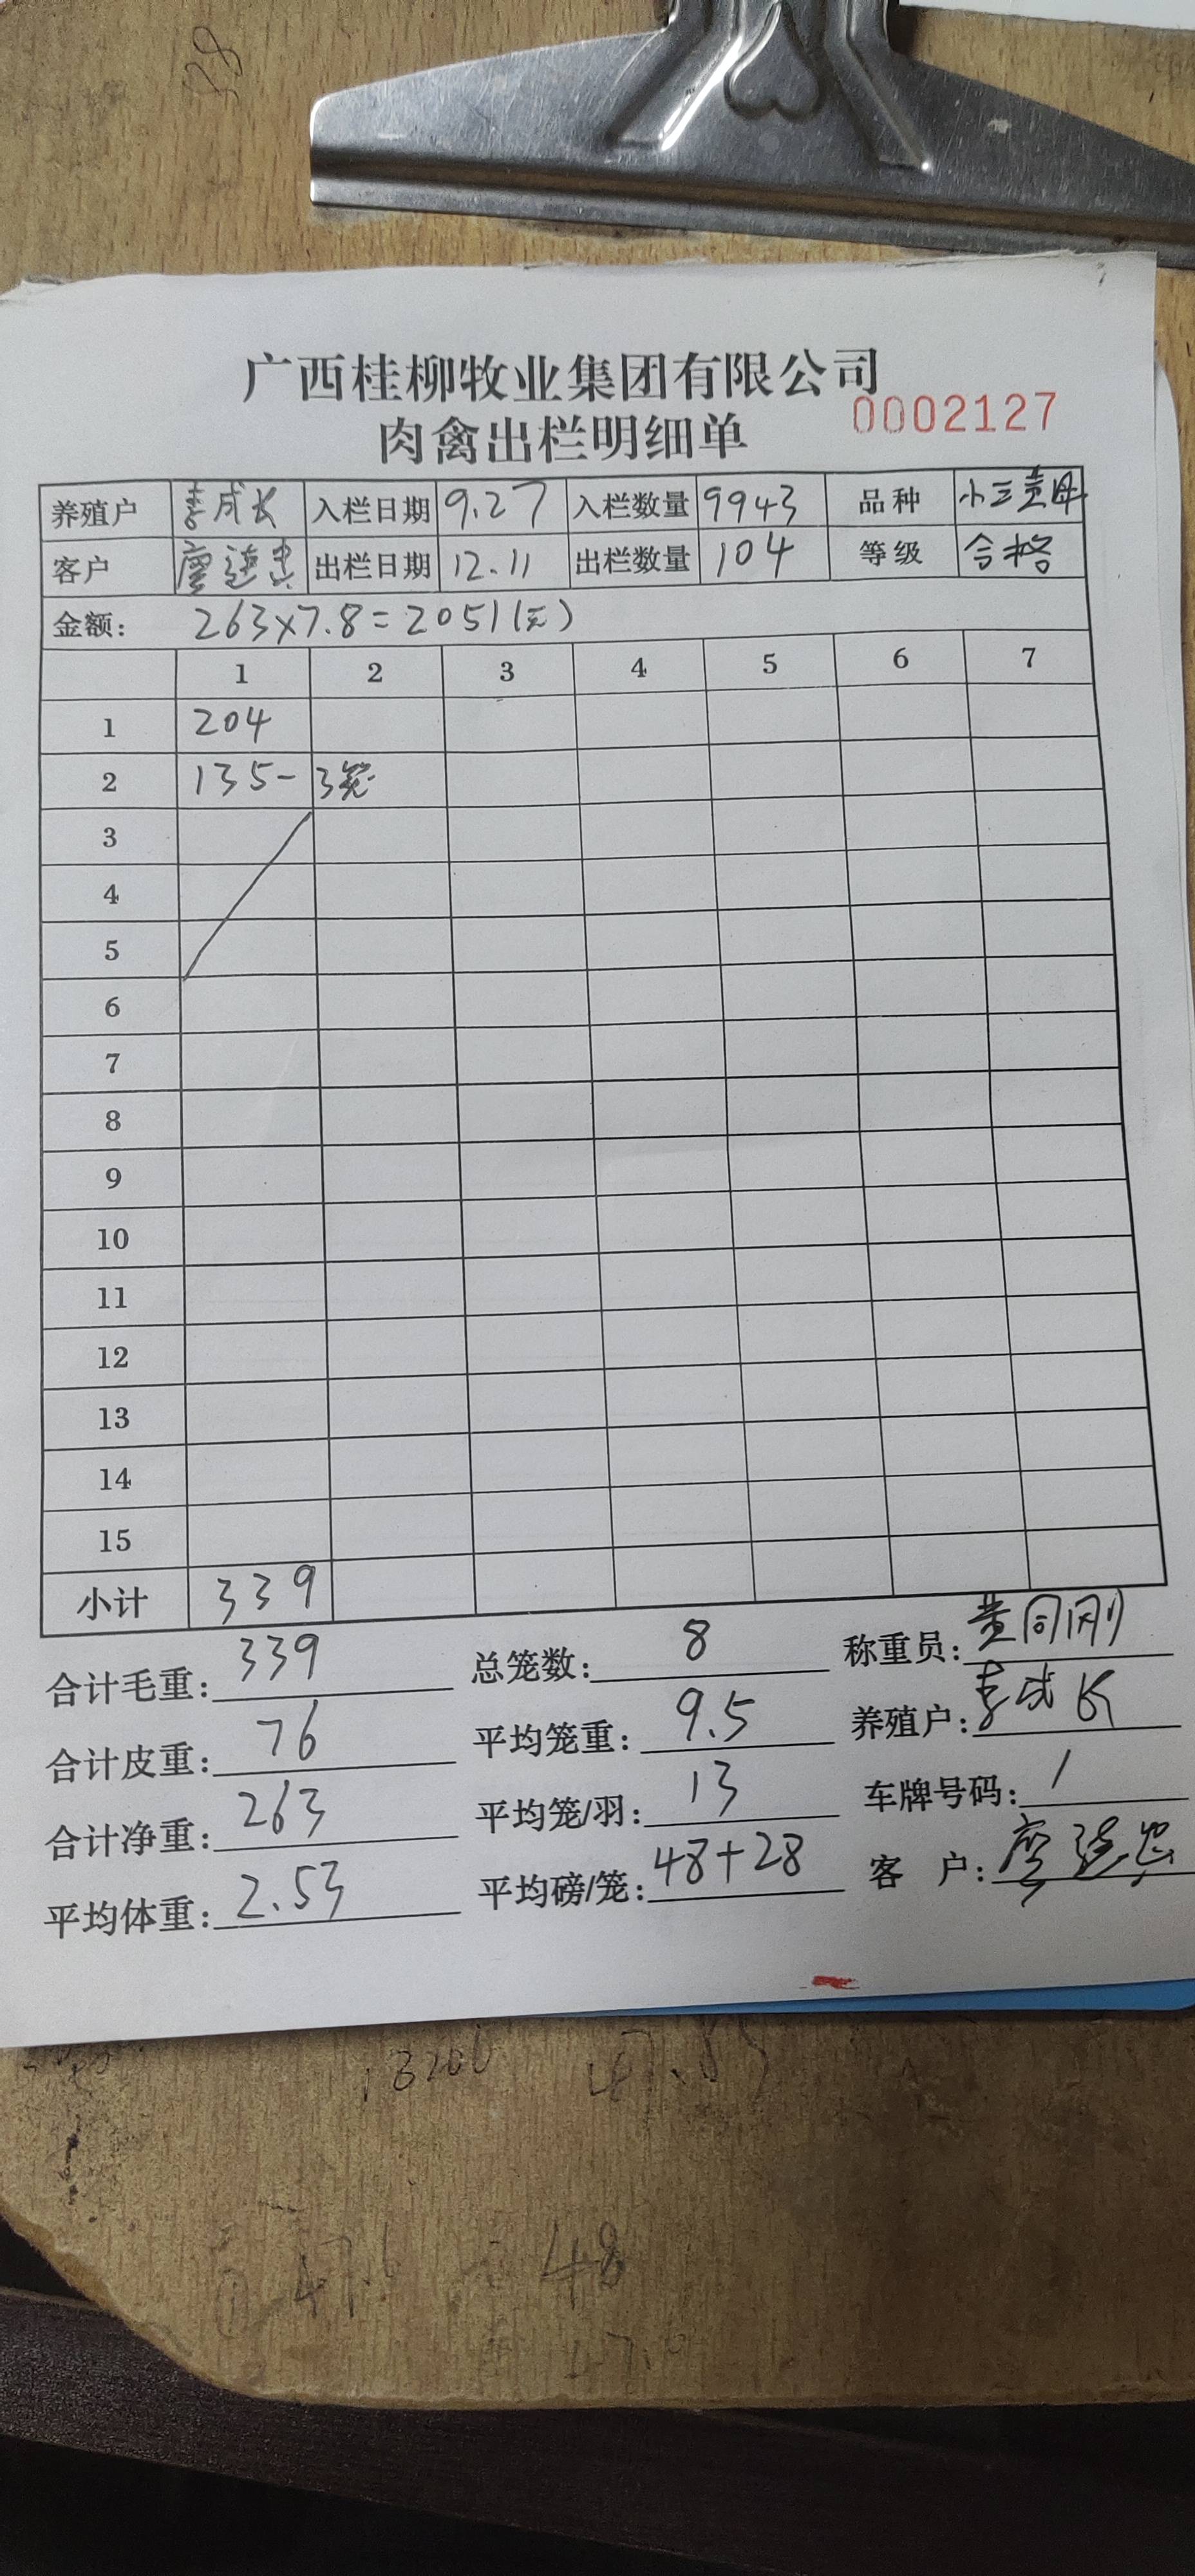 广西桂柳牧业集团有限公司
肉禽出栏明细单 0002127
养殖户 李成长 入栏日期 9.27 入栏数量 9943 品种 小三黄母
客户 廖 出栏日期 12.11 出栏数量 104 等级 合格
金额: 263×7.8=2051(元)
1 2 3 4 5 6 7
1 204
2 135- 3笼
3
4
5
6
7
8
9
10
11
12
13
14
15
小计 339
合计毛重: 339 总笼数: 8 称重员: 黄同刚
合计皮重: 76 平均笼重: 9.5 养殖户: 李成长
合计净重: 263 平均笼/羽: 13 车牌号码: /
平均体重: 2.53 平均磅/笼: 48+28 客 户: 廖
48